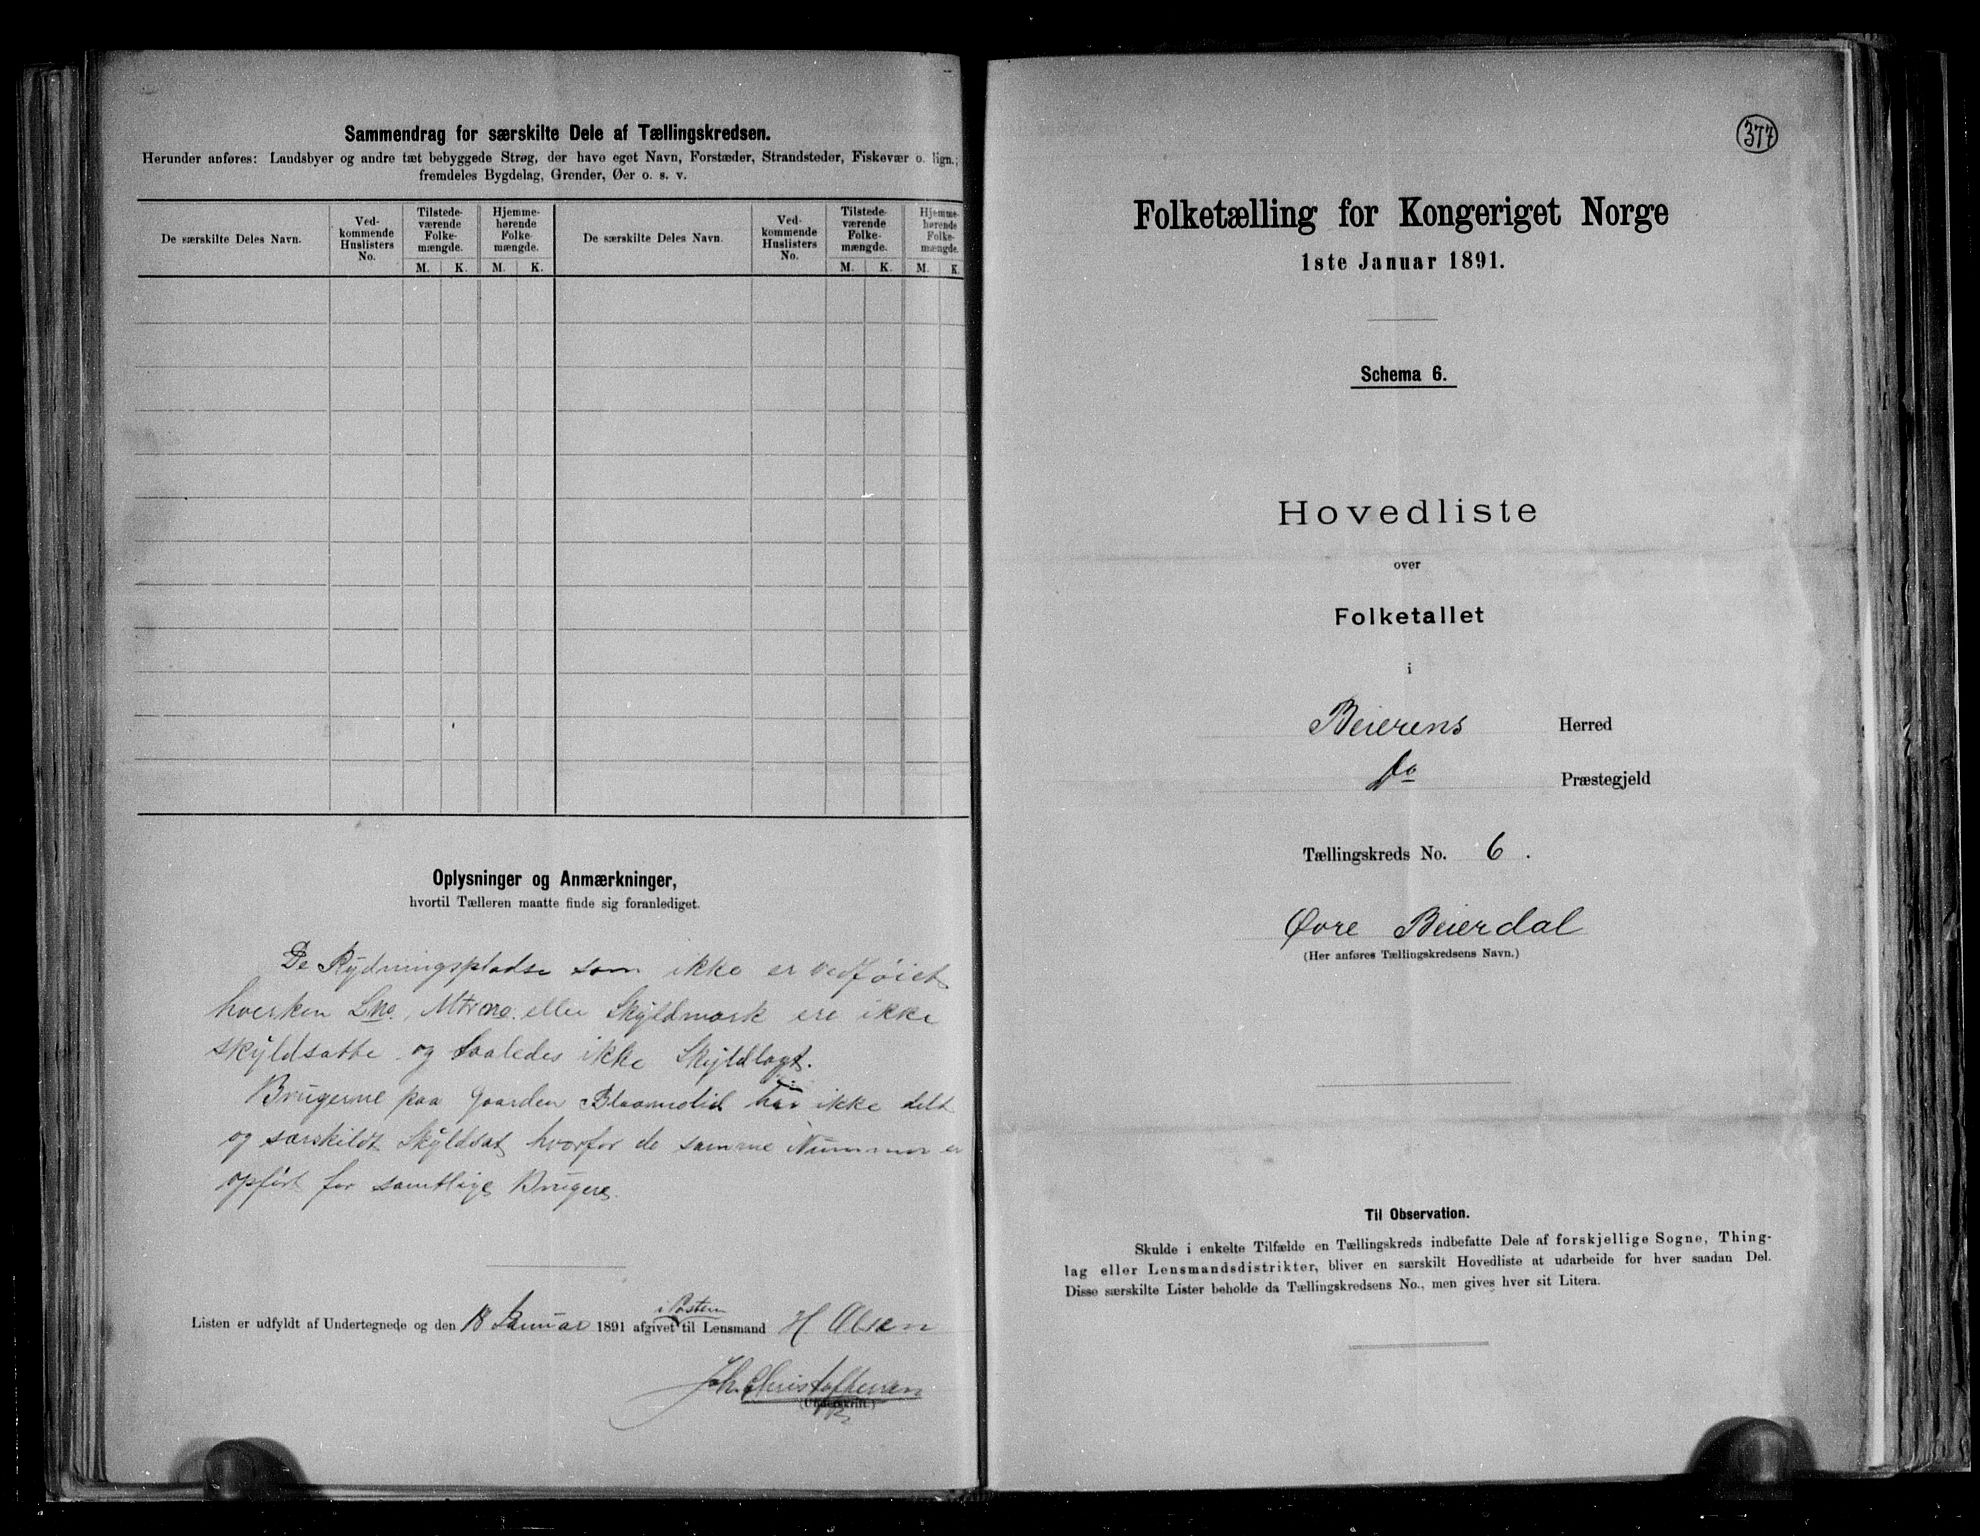 Sammendrag for særskilte Dele af Tællingskredsen.
Herunder anføres: Landsbyer og andre tæt bebyggede Strøg, der have eget Navn, Forstæder, Strandsteder, Fiskevær o. lign.;
fremdeles Bygdelag, Grender, Øer o. s. v.
De særskilte Deles Navn.
Ved-
kommende
Huslisters
No.
Tilstede-
værende
Folke-
mængde.
M. K.
Hjemme-
hørende
Folke-
mængde.
M. K.
De særskilte Deles Navn.
Ved-
kommende
Huslisters
No.
Tilstede-
værende
Folke-
mængde.
M. K.
Hjemme-
hørende
Folke-
mængde.
M. K.
Oplysninger og Anmærkninger,
hvortil Tælleren maatte finde sig foranlediget.
De Rydningspladse som ikke er vedføiet
hverken Lno, Mtr no. eller Skyldmark ere ikke
skyldsatte og saaledes ikke Skyldlagt.
Brugerne paa Gaarden har ikke delt
og særskildt Skyldsat hvorfor de samme Nummer er
opført for samtlige Brugere.
Listen er udfyldt af Undertegnede og den 18 Januar 1891 afgivet i Posten til Lensmand H Olsen
Joh. Christoffersen
(Underskrift.)
377
Folketælling for Kongeriget Norge
1ste Januar 1891.
Schema 6.
Hovedliste
over
Folketallet
i
Beierens Herred
Do Præstegjeld
Tællingskreds No. 6.
Øvre Beierdal
(Her anføres Tællingskredsens Navn.)
Til Observation.
Skulde i enkelte Tilfælde en Tællingskreds indbefatte Dele af forskjellige Sogne, Thing-
lag eller Lensmandsdistrikter, bliver en særskilt Hovedliste at udarbeide for hver saadan Del.
Disse særskilte Lister beholde da Tællingskredsens No., men gives hver sit Litera.